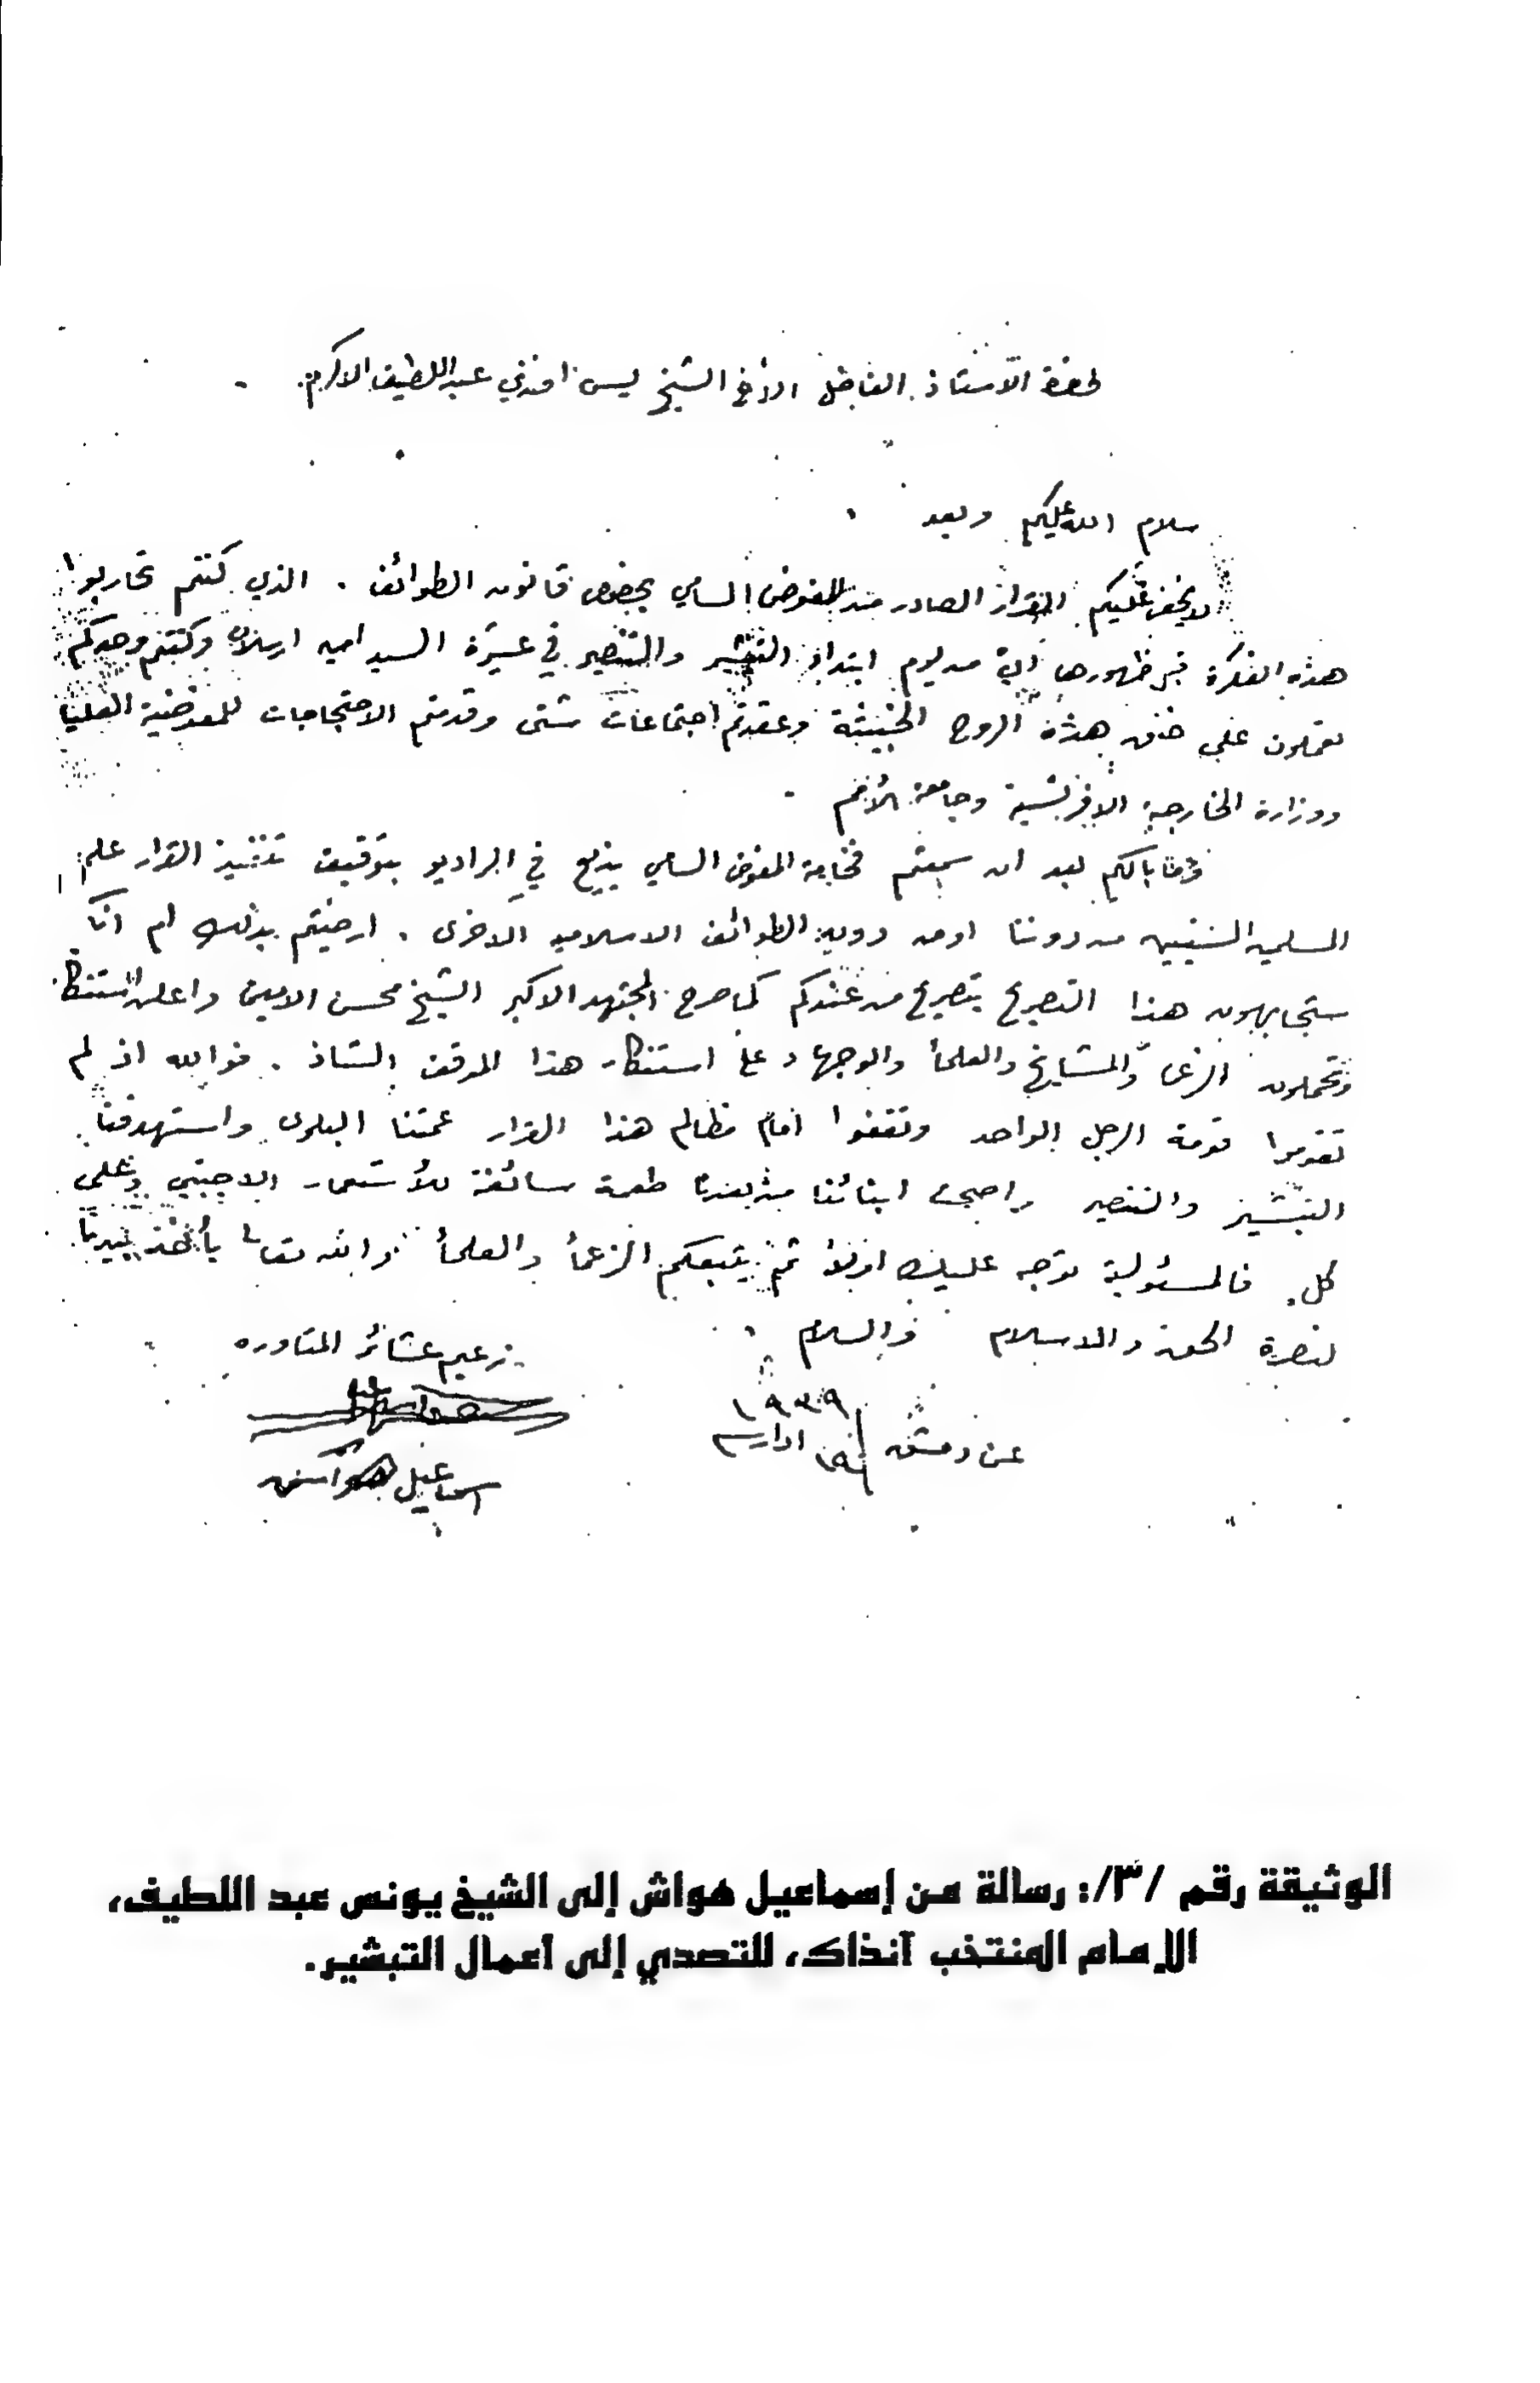 لحضرة الأستاذ الفاضل الأخ الشيخ يونس افندي عبد اللطيف الاكرم
سلام الله عليكم وبعد
لا يخفى عليكم القرار الصادر من المفوض السامي بخصوص قانون الطوائف . الذي كنتم تحاربوا
هذه الفكرة قبل ظهورها اي من يوم ابتداء التبشير والتنصير في عشيرة السيد امين ارسلان وكنتم وحدكم
تعملون على خنق هذه الروح الخبيثة وعقدتم اجتماعات شتى وقدمتم الاحتجاجات للمفوضية العليا
ووزارة الخارجية الافرنسية وجامعة الأمم
فما بالكم بعد ان سمعتم فخامة المفوض السامي يذيع في الراديو بتوقيف تنفيذ القرار على
المسلمين السنيين من دوننا او من دون الطوائف الاسلامية الاخرى . ارضيتم بذلك ام انكم
ستجابهون هذا التصريح بتصريح من عندكم كما صرح المجتهد الاكبر الشيخ محسن الامين واعلن استنكاره
وتحملون الزعما والمشايخ والعلمأ والوجهاء على استنكار هذا الموقف الشاذ . فوالله اذ لم
تقوموا قومة الرجل الواحد وتقفوا امام مظالم هذا القرار عمتنا البلوى واستهدفنا
التبشير والتنصير واصبحت ابنائنا من بعدنا طعمة سائغة للأستعمار الاجنبي وعلى
كل فالمسئولية توجه عليك اولاً ثم يتبعكم الزعمأ والعلمأ والله تعالى يأخذ بيدنا
لنصرة الحق والاسلام والسلام
زعيم عشائر المتاوره
عن دمشق ١٩ اذار سنة ١٩٣٩
اسماعيل هواش
الوثيقة رقم /٣/: رسالة من إسماعيل هواش إلى الشيخ يونس عبد اللطيف،
الإمام المنتخب آنذاك، للتصدي إلى أعمال التبشير.